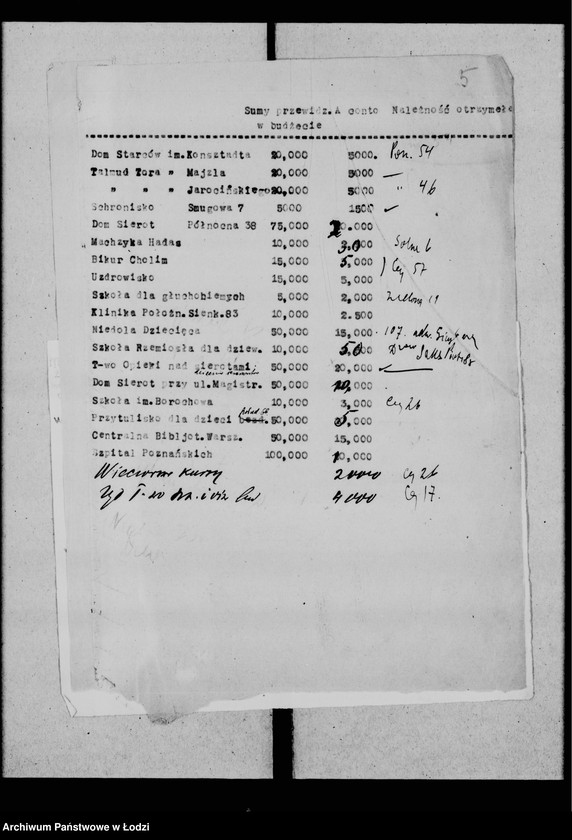 5
Sumy przewidz. A conto Należność otrzymałe
w budżecie
Dom Starców im. Konsztadta 20,000 5000. Pom. 54
Talmud Tora " Majzla 20,000 5000 —
" " " Jarocińskiego 20,000 5000 " 46
Schronisko Smugowa 7 5000 1500 ✓
Dom Sierot Północna 38 75,000 20.000
„ Machzyka Hadas 10,000 3.000 Solna 6
Bikur Cholim 15,000 5,000 ) Ceg 57
Uzdrowisko 15,000 5,000
Szkoła dla głuchoniemych 5,000 2,000 Zielona 11
Klinika Położn. Sienk. 83 10,000 2.500
Niedola Dziecięca 50,000 15,000 · 107.
Szkoła Rzemiosła dla dziew. 10,000 5,000
T-wo Opieki nad sierotami; 50,000 20,000
Dom Sierot przy ul. Magistr. 50,000 10,000
Szkoła im. Borochowa 10,000 3,000 Ceg 26
Przytulisko dla dzieci bezd. 50,000 5,000
Centralna Bibljot. Warsz. 50,000 15,000
Szpital Poznańskich 100,000 10,000
Wieczorowe Kursy 2000 Ceg 26
Żyd T-wo 4000 Ceg 17.
Archiwum Państwowe w Łodzi